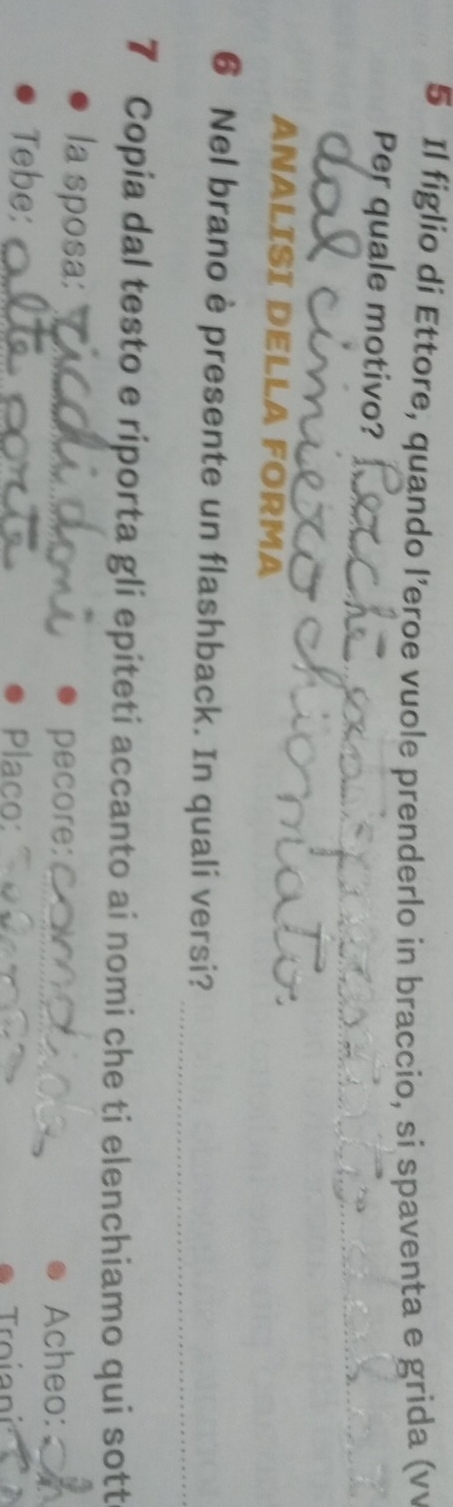 5 Il figlio di Ettore, quando l'eroe vuole prenderlo in braccio, si spaventa e grida (vv
Per quale motivo? Perché era spaventato dal
dal cimiero chiomato.
ANALISI DELLA FORMA
6 Nel brano è presente un flashback. In quali versi?
7 Copia dal testo e riporta gli epiteti accanto ai nomi che ti elenchiamo qui sott
• la sposa: ricdi doni • pecore: • Acheo: ch
• Tebe: alte porte • Placo: • Troiani